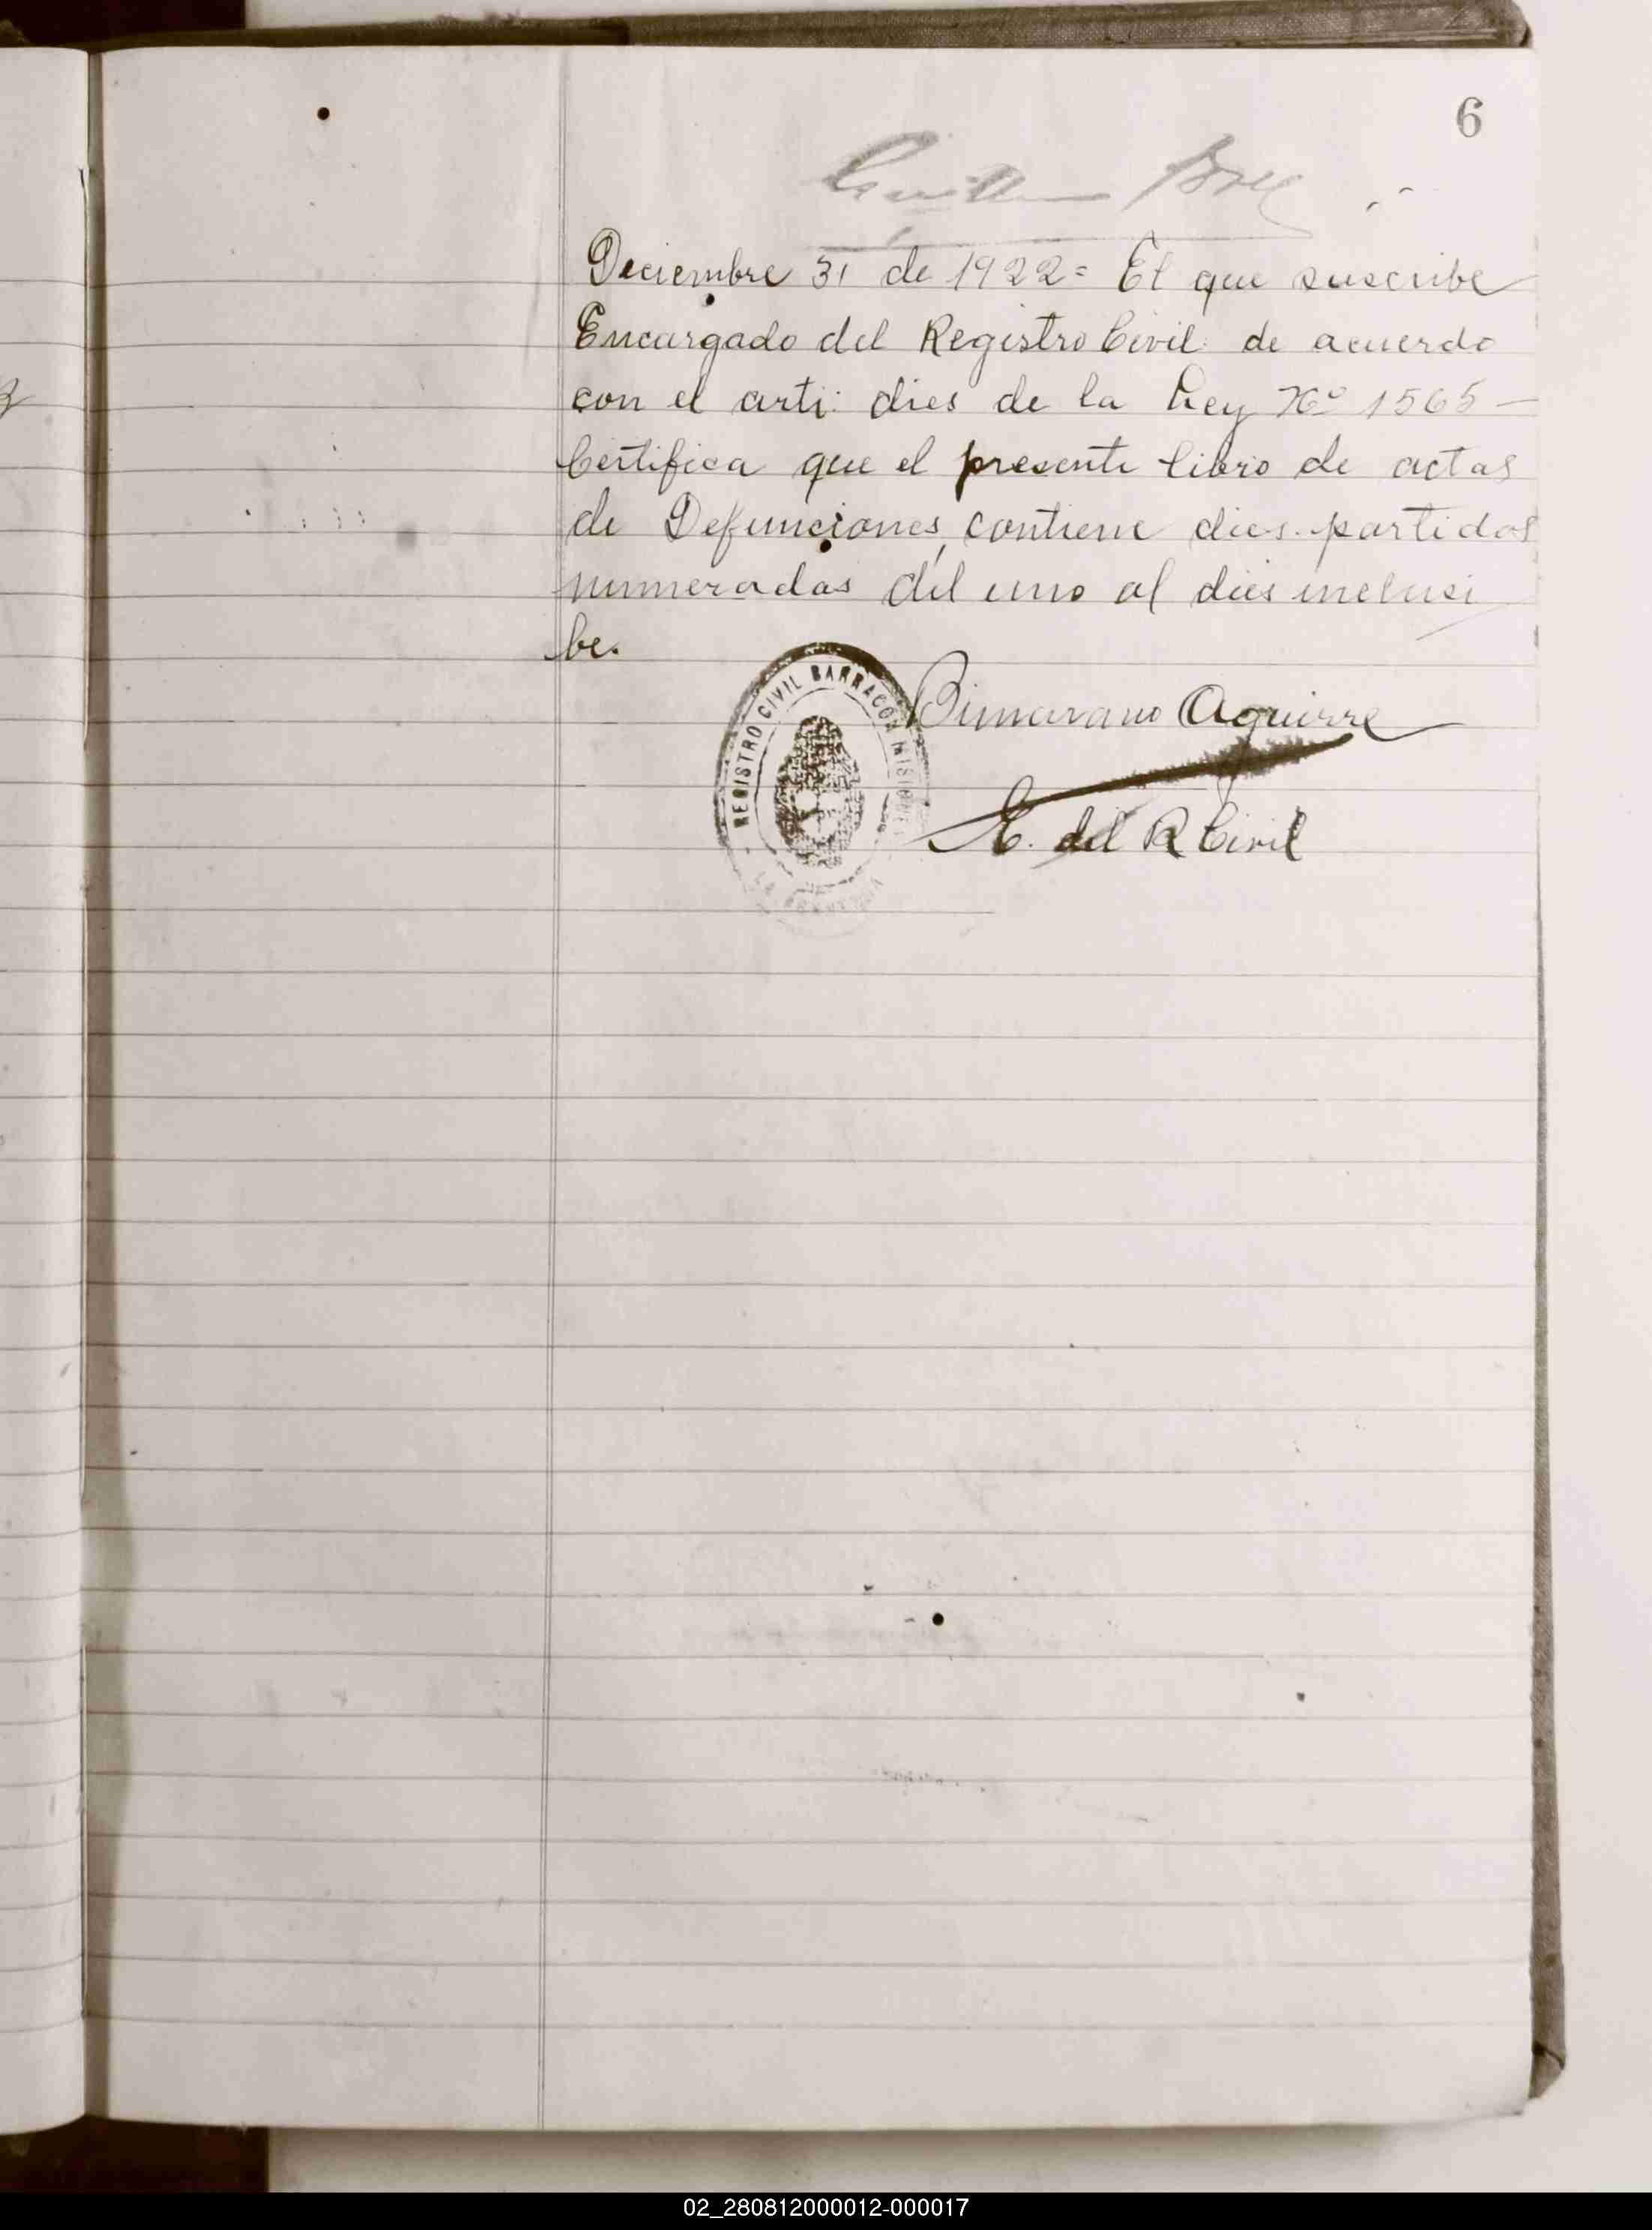 6
Deciembre 31 de 1922= El que suscribe
Encargado del Registro Civil de acuerdo
con el arti: dies de la Ley No 1565—
Certifica que el presente libro de actas
de Defunciones, contiene dies partidas
numeradas del uno al dies inclusi
be.
REGISTRO CIVIL BARRACON MISIONES
Aguirre
E. del R Civil
02_280812000012-000017